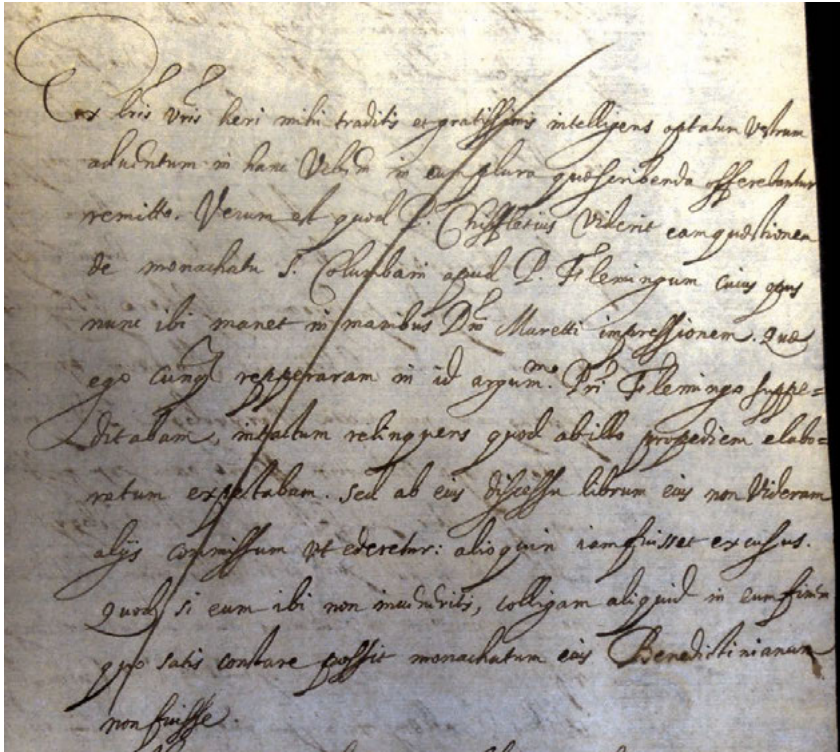 Ex lris vris heri mihi traditis et gratissimis intelligens optatum vestrum
aduentum in hanc Vrbem in eum plura quae scribenda offerebantur
remitto. Verum est quod P. Chiffletius viderit eam quaestionem
de monachatu S. Columbani apud P. Flemingum cuius opus
nunc ibi manet in manibus Dni Maretti impressionem. Quae
ego cunq repperaram in id argum.m Pri Flemingo suppe=
ditabam, intactum relinquens quod ab illo propediem elabo=
ratum expectabam. Sed ab eius discessu librum eius non videram
alijs commissum vt ederetur: alioquin iam fuisset excusus.
Quod si eum ibi non inueneritis, colligam aliquid in eum finem
quo satis constare possit monachatum eius Benedictinianum
non fuisse.